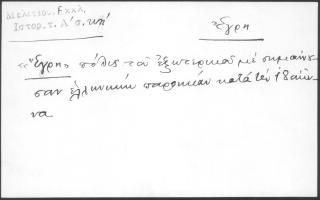 Μελετίου. Εκκλ.
Ιστορ. τ. Α' σ. κη'
Έγρη
«Έγρη» πόλις του εξωτερικού με σημαίνου-
σαν ελληνικήν παροικίαν κατά τον 18 αιώ-
να